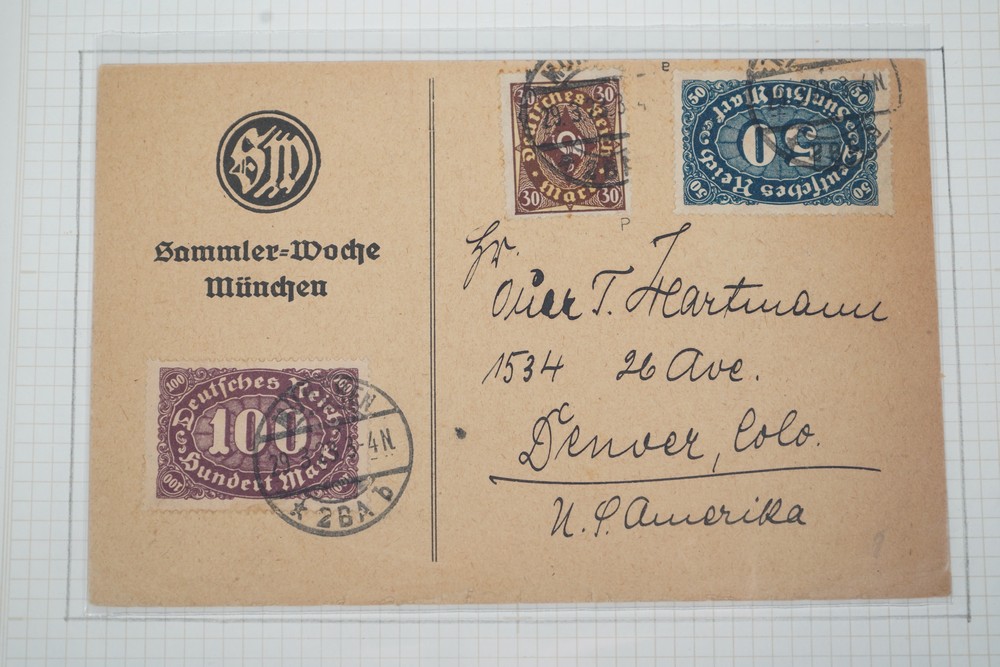 SW
Sammler=Woche
München
30 30
Deutsches Reich
Mark
30 30
50 50
Deutsches Reich
50
Fünfzig Mark
50 50
Hr.
T. Hartmann
1534 26 Ave.
Denver, Colo.
U. S. Amerika
100 100
Deutsches Reich
100
Hundert Mark
100 100
3-4N
* 2BA b